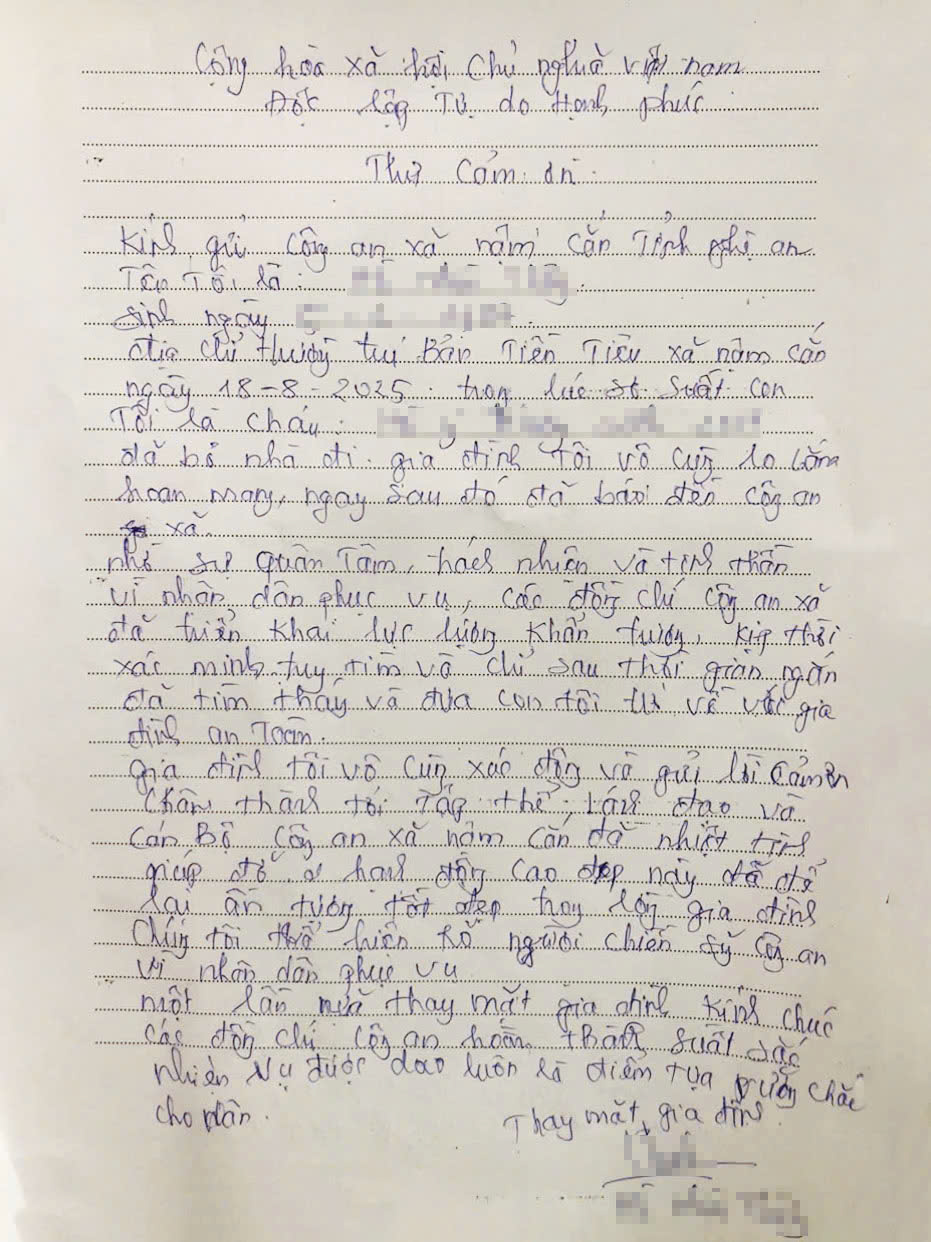 Cộng hòa xã hội Chủ nghĩa việt nam
Độc lập Tự do Hạnh phúc
Thư Cảm ơn
Kính gửi Công an xã nậm cắn Tỉnh nghệ an
Tên Tôi là:
sinh ngày
địa chỉ thường trú Bản Tiền Tiêu xã nậm cắn
ngày 18-8-2025. trong lúc sơ suất con
Tôi là cháu:
đã bỏ nhà đi. gia đình tôi vô cùng lo lắng
hoan mang, ngay sau đó đã báo đến công an
xã.
nhờ sự quân Tâm, trách nhiện và tinh thần
vì nhân dân phục vụ, các đồng chí công an xã
đã triển khai lực lượng khẩn trương, kịp thời
xác minh, truy tìm và chỉ sau thời gian ngắn
đã tìm thấy và đưa con tôi trở về với gia
đình an Toàn.
gia đình tôi vô cùng xúc động và gửi lời cảm ơn
chân thành tới Tập thể, lãnh đạo và
cán Bộ công an xã nậm cắn đã nhiệt tình
giúp đỡ hành động cao đẹp này đã để
lại ấn tượng tốt đẹp trong lòng gia đình
Chúng tôi thể hiện rõ người chiến sỹ công an
vì nhân dân phục vụ
một lần nữa thay mặt gia đình kính chúc
các đồng chí công an hoàn thành suất sắc
nhiện vụ được dao luôn là điểm tựa vững chắc
cho dân.
Thay mặt gia đình